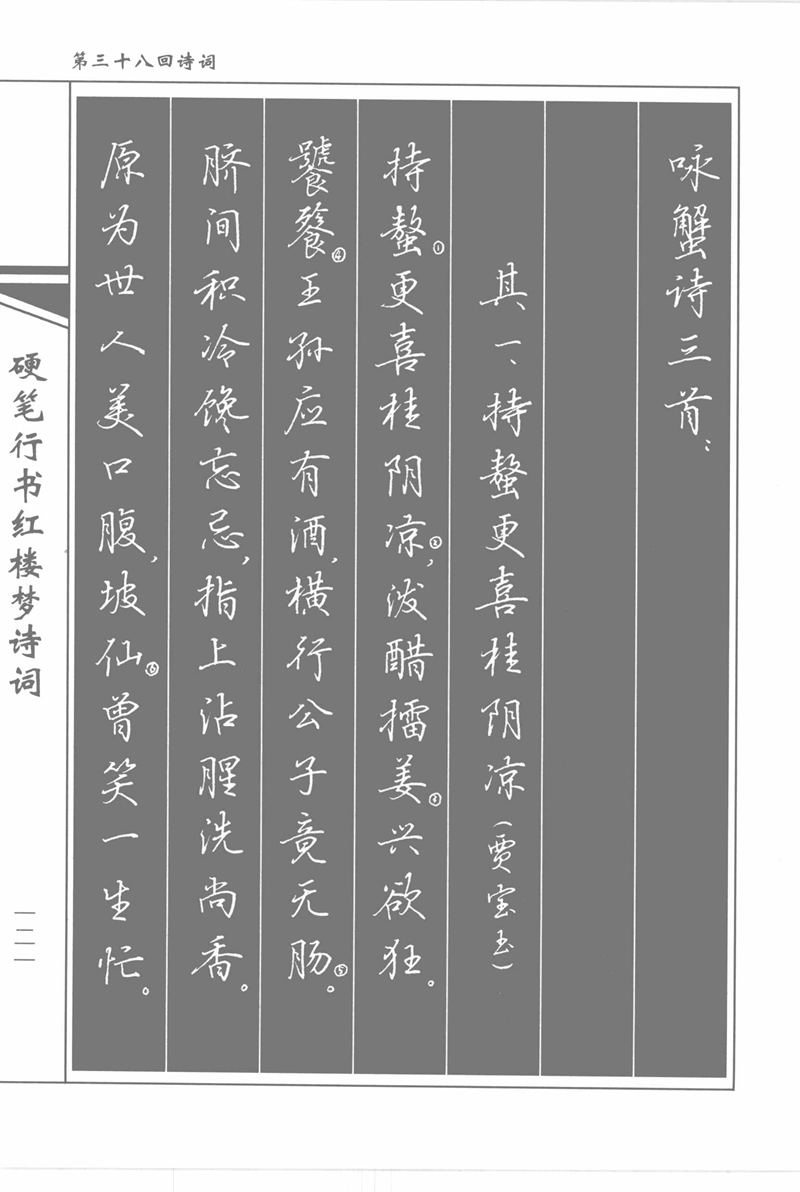 第三十八回诗词
咏蟹诗三首：
其一、持螯更喜桂阴凉（贾宝玉）
持螯①更喜桂阴凉②，泼醋擂姜③兴欲狂。
饕餮④王孙应有酒，横行公子竟无肠⑤。
脐间积冷馋忘忌，指上沾腥洗尚香。
原为世人美口腹，坡仙⑥曾笑一生忙。
硬笔行书红楼梦诗词
一二一